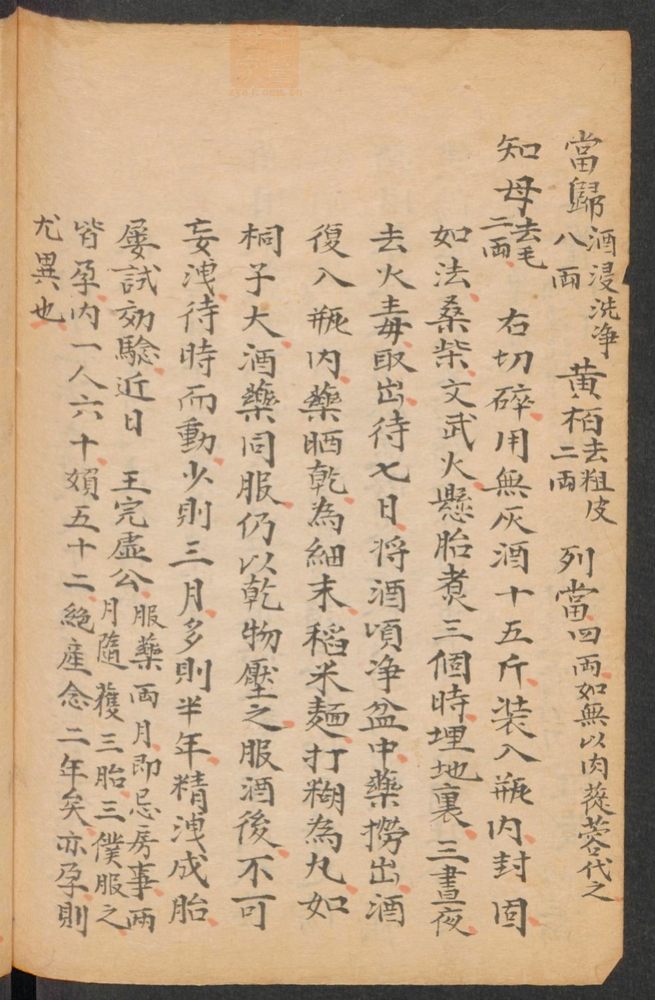 當歸酒浸洗净八兩 黄栢去粗皮二兩 列當四兩如無以肉蓯蓉代之
知母去毛二兩 右切碎用無灰酒十五斤装入瓶内封固
如法桑柴文武火懸胎煮三個時埋地裏三晝夜
去火毒取出待七日将酒頃净盆中藥撈出酒
復入瓶内藥晒乾為細末稻米麵打糊為丸如
桐子大酒藥同服仍以乾物壓之服酒後不可
妄洩待時而動少則三月多則半年精洩成胎
屡試効驗近日 王完虚公服藥两月即忌房事兩月隨獲三胎三僕服之
皆孕内一人六十頞五十二絶産念二年矣亦孕則
尤異也